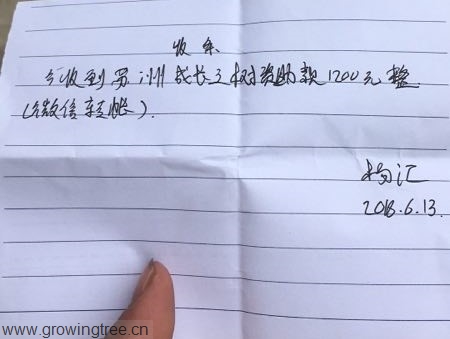 收条
今收到苏州成长之树资助款1200元整
(微信转帐).
杨汇
2018.6.13.
www.growingtree.cn